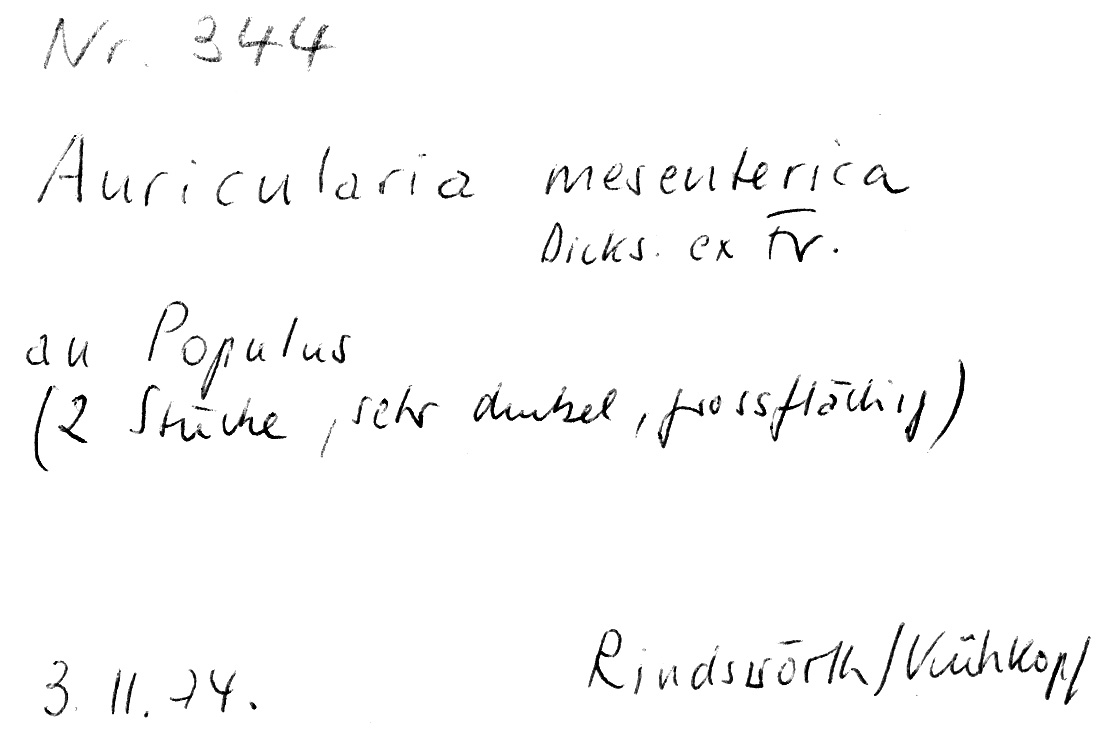 Nr. 344
Auricularia mesenterica
Dicks. ex Fr.
an Populus
(2 Stücke, sehr dunkel, grossflächig)
3.11.74. Rindswörth/Kühkopf